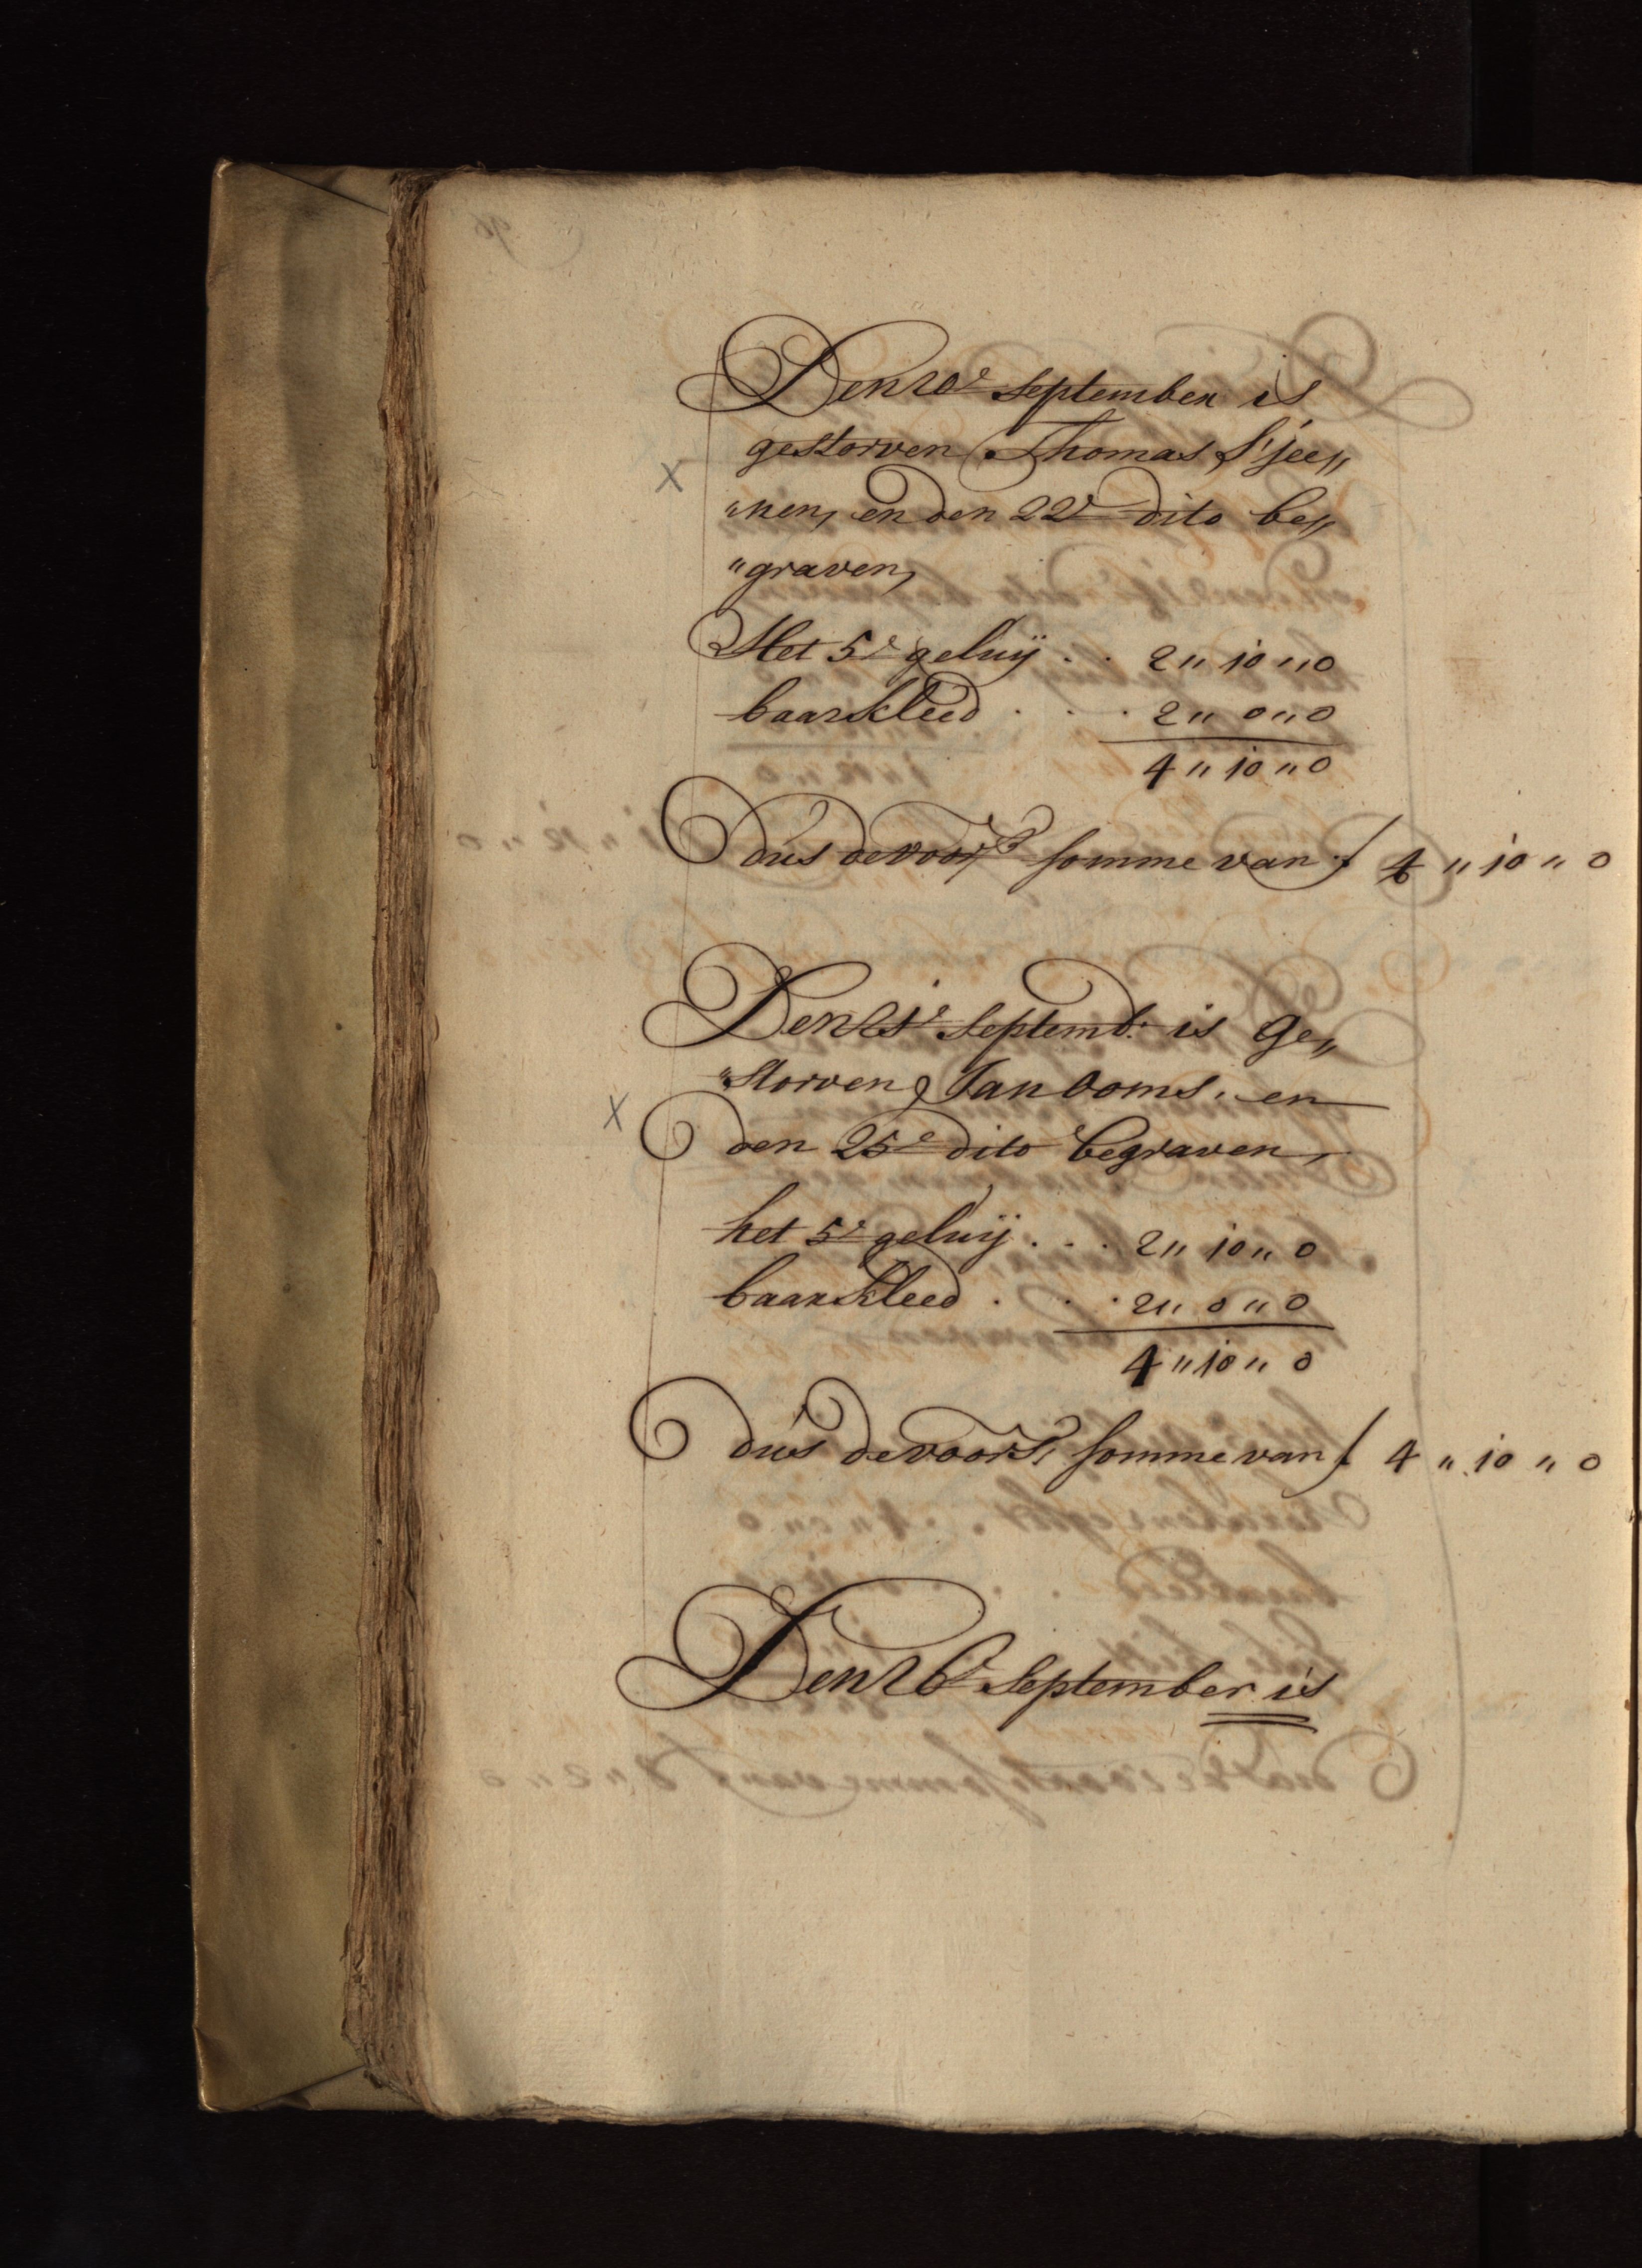 Den 20e september is
gestorven Thomas S'jee„
„nen, en den 22e dito be„
„graven,
Het 5e geluij . . 2 „ 10 „ 0
baarkleed . . . 2 „ 0 „ 0
4 „ 10 „ 0
dus de voors somme van f 4 „ 10 „ 0
Den 21e septemb: is ge„
„storven Jan Ooms, en
den 25e dito begraven,
het 5e geluij . . . 2 „ 10 „ 0
baarkleed . . . 2 „ 0 „ 0
4 „ 10 „ 0
dus de voors, somme van f 4 „ 10 „ 0
Den 26e september is